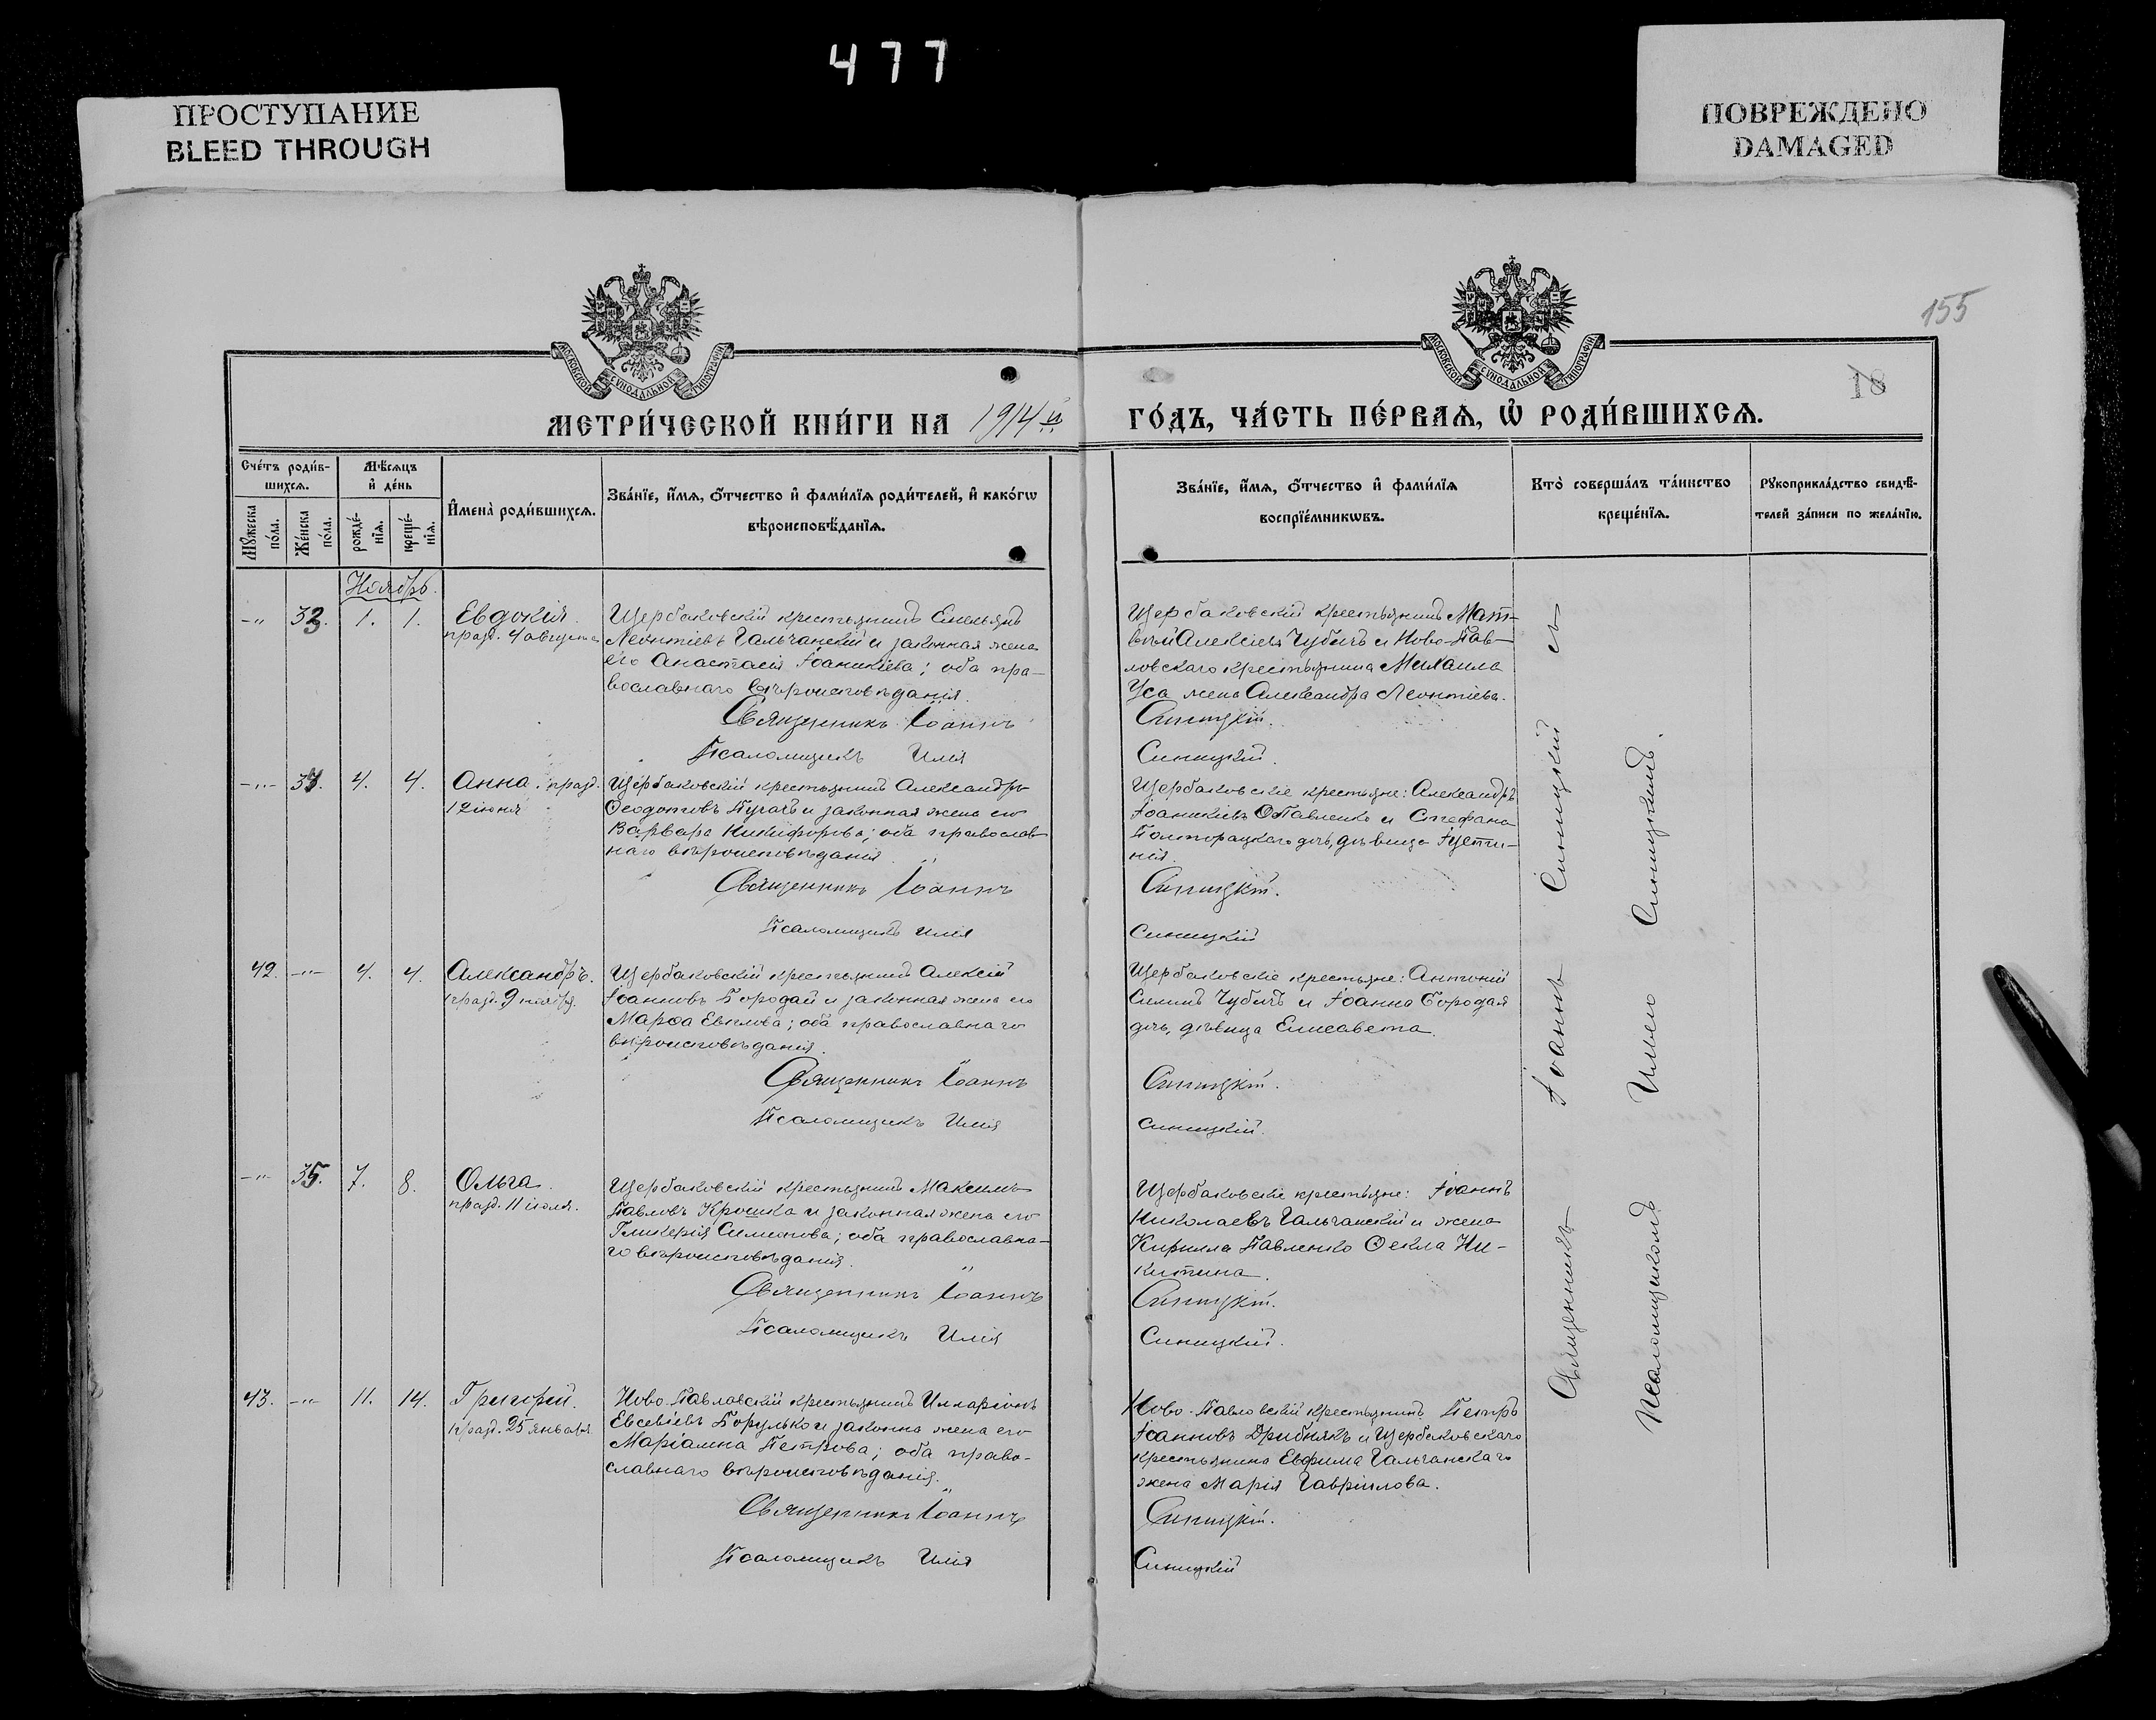 477
ПРОСТУПАНИЕ
BLEED THROUGH
ПОВРЕЖДЕНО
DAMAGED
155
18
МОСКОВСКОЙ СУНОДАЛЬНОЙ ТИПОГРАФІИ
МОСКОВСКОЙ СУНОДАЛЬНОЙ ТИПОГРАФІИ
МЕТРИ́ЧЕСКОЙ КНИ́ГИ НА 1914й ГО́ДЪ, ЧА́СТЬ ПЕ́РВАѦ, Ѡ҆ РОДИ́ВШИХСѦ.
Сче́тъ роди́в-
шихсѧ.
Мꙋ́жеска
по́ла.
Же́нска
по́ла.
Мѣ́сѧцъ
и҆ де́нь
рожде́-
нїѧ.
креще́-
нїѧ.
И҆мена̀ роди́вшихсѧ.
Зва́нїе, и҆́мѧ, ѻ҆́тчество и҆ фами́лїѧ роди́телей, и҆ како́гѡ
вѣроисповѣ́данїѧ.
Зва́нїе, и҆́мѧ, ѻ҆́тчество и҆ фами́лїѧ
воспрїе́мникѡвъ.
Кто̀ соверша́лъ та́инство
креще́нїѧ.
Рꙋкоприкла́дство свидѣ́-
телей за́писи по жела́нїю.
Ноябрь.
-"- 33. 1. 1. Евдокія.
празд. 4 августа
Щербаковскій крестьянинъ Емельянъ
Леонтіевъ Гальчанскій и законная жена
его Анастасія Іоаникіева; оба пра-
вославнаго вѣроисповѣданія.
Священникъ Іоаннъ
Псаломщикъ Илія
Щербаковскій крестьянинъ Мат-
вѣй Алексіевъ Чубичъ и Ново-Пав-
ловскаго крестьянина Михаила
Уса жена Александра Леонтіева.
Синицкій.
Синицкій.
-"- 34. 4. 4. Анна. празд.
12 іюня
Щербаковскій крестьянинъ Александръ
Ѳеодотовъ Пугачъ и законная жена его
Варвара Никифорова; оба православ-
наго вѣроисповѣданія.
Священникъ Іоаннъ
Псаломщикъ Илія
Щербаковскіе крестьяне: Александръ
Іоаникіевъ Павленко и Стефана
Полторацкаго дочь, дѣвица Іусти-
нія.
Синицкій.
Синицкій
42. -"- 4. 4. Александръ.
празд. 9 ноября.
Щербаковскій крестьянинъ Алексій
Іоанновъ Бородай и законная жена его
Марѳа Евплова; оба православнаго
вѣроисповѣданія.
Священникъ Іоаннъ
Псаломщикъ Илія
Щербаковскіе крестьяне: Антоній
Симинъ Чубичъ и Іоанна Бородая
дочь, дѣвица Елисавета.
Синицкій.
Синицкій.
-"- 35. 7. 8. Ольга.
празд. 11 іюля.
Щербаковскій крестьянинъ Максимъ
Павловъ Крошка и законная жена его
Гликерія Симонова; оба православна-
го вѣроисповѣданія.
Священникъ Іоаннъ
Псаломщикъ Илія
Щербаковскіе крестьяне: Іоаннъ
Николаевъ Гальчанскій и жена
Кирилла Павленко Ѳекла Ни-
китина.
Синицкій.
Синицкій.
43. -"- 11. 14. Григорій.
празд. 25 января.
Ново-Павловскій крестьянинъ Илларіонъ
Евсевіевъ Борулько и законна жена его
Маріамна Петрова; оба право-
славнаго вѣроисповѣданія.
Священникъ Іоаннъ
Псаломщикъ Илія
Ново-Павловскій крестьянинъ Петръ
Іоанновъ Дрибнякъ и Щербаковскаго
крестьянина Евфима Гальчанскаго
жена Марія Гавріилова.
Синицкій.
Синицкій
Священникъ Іоаннъ Синицкій съ
Псаломщикомъ Иліею Синицкимъ.